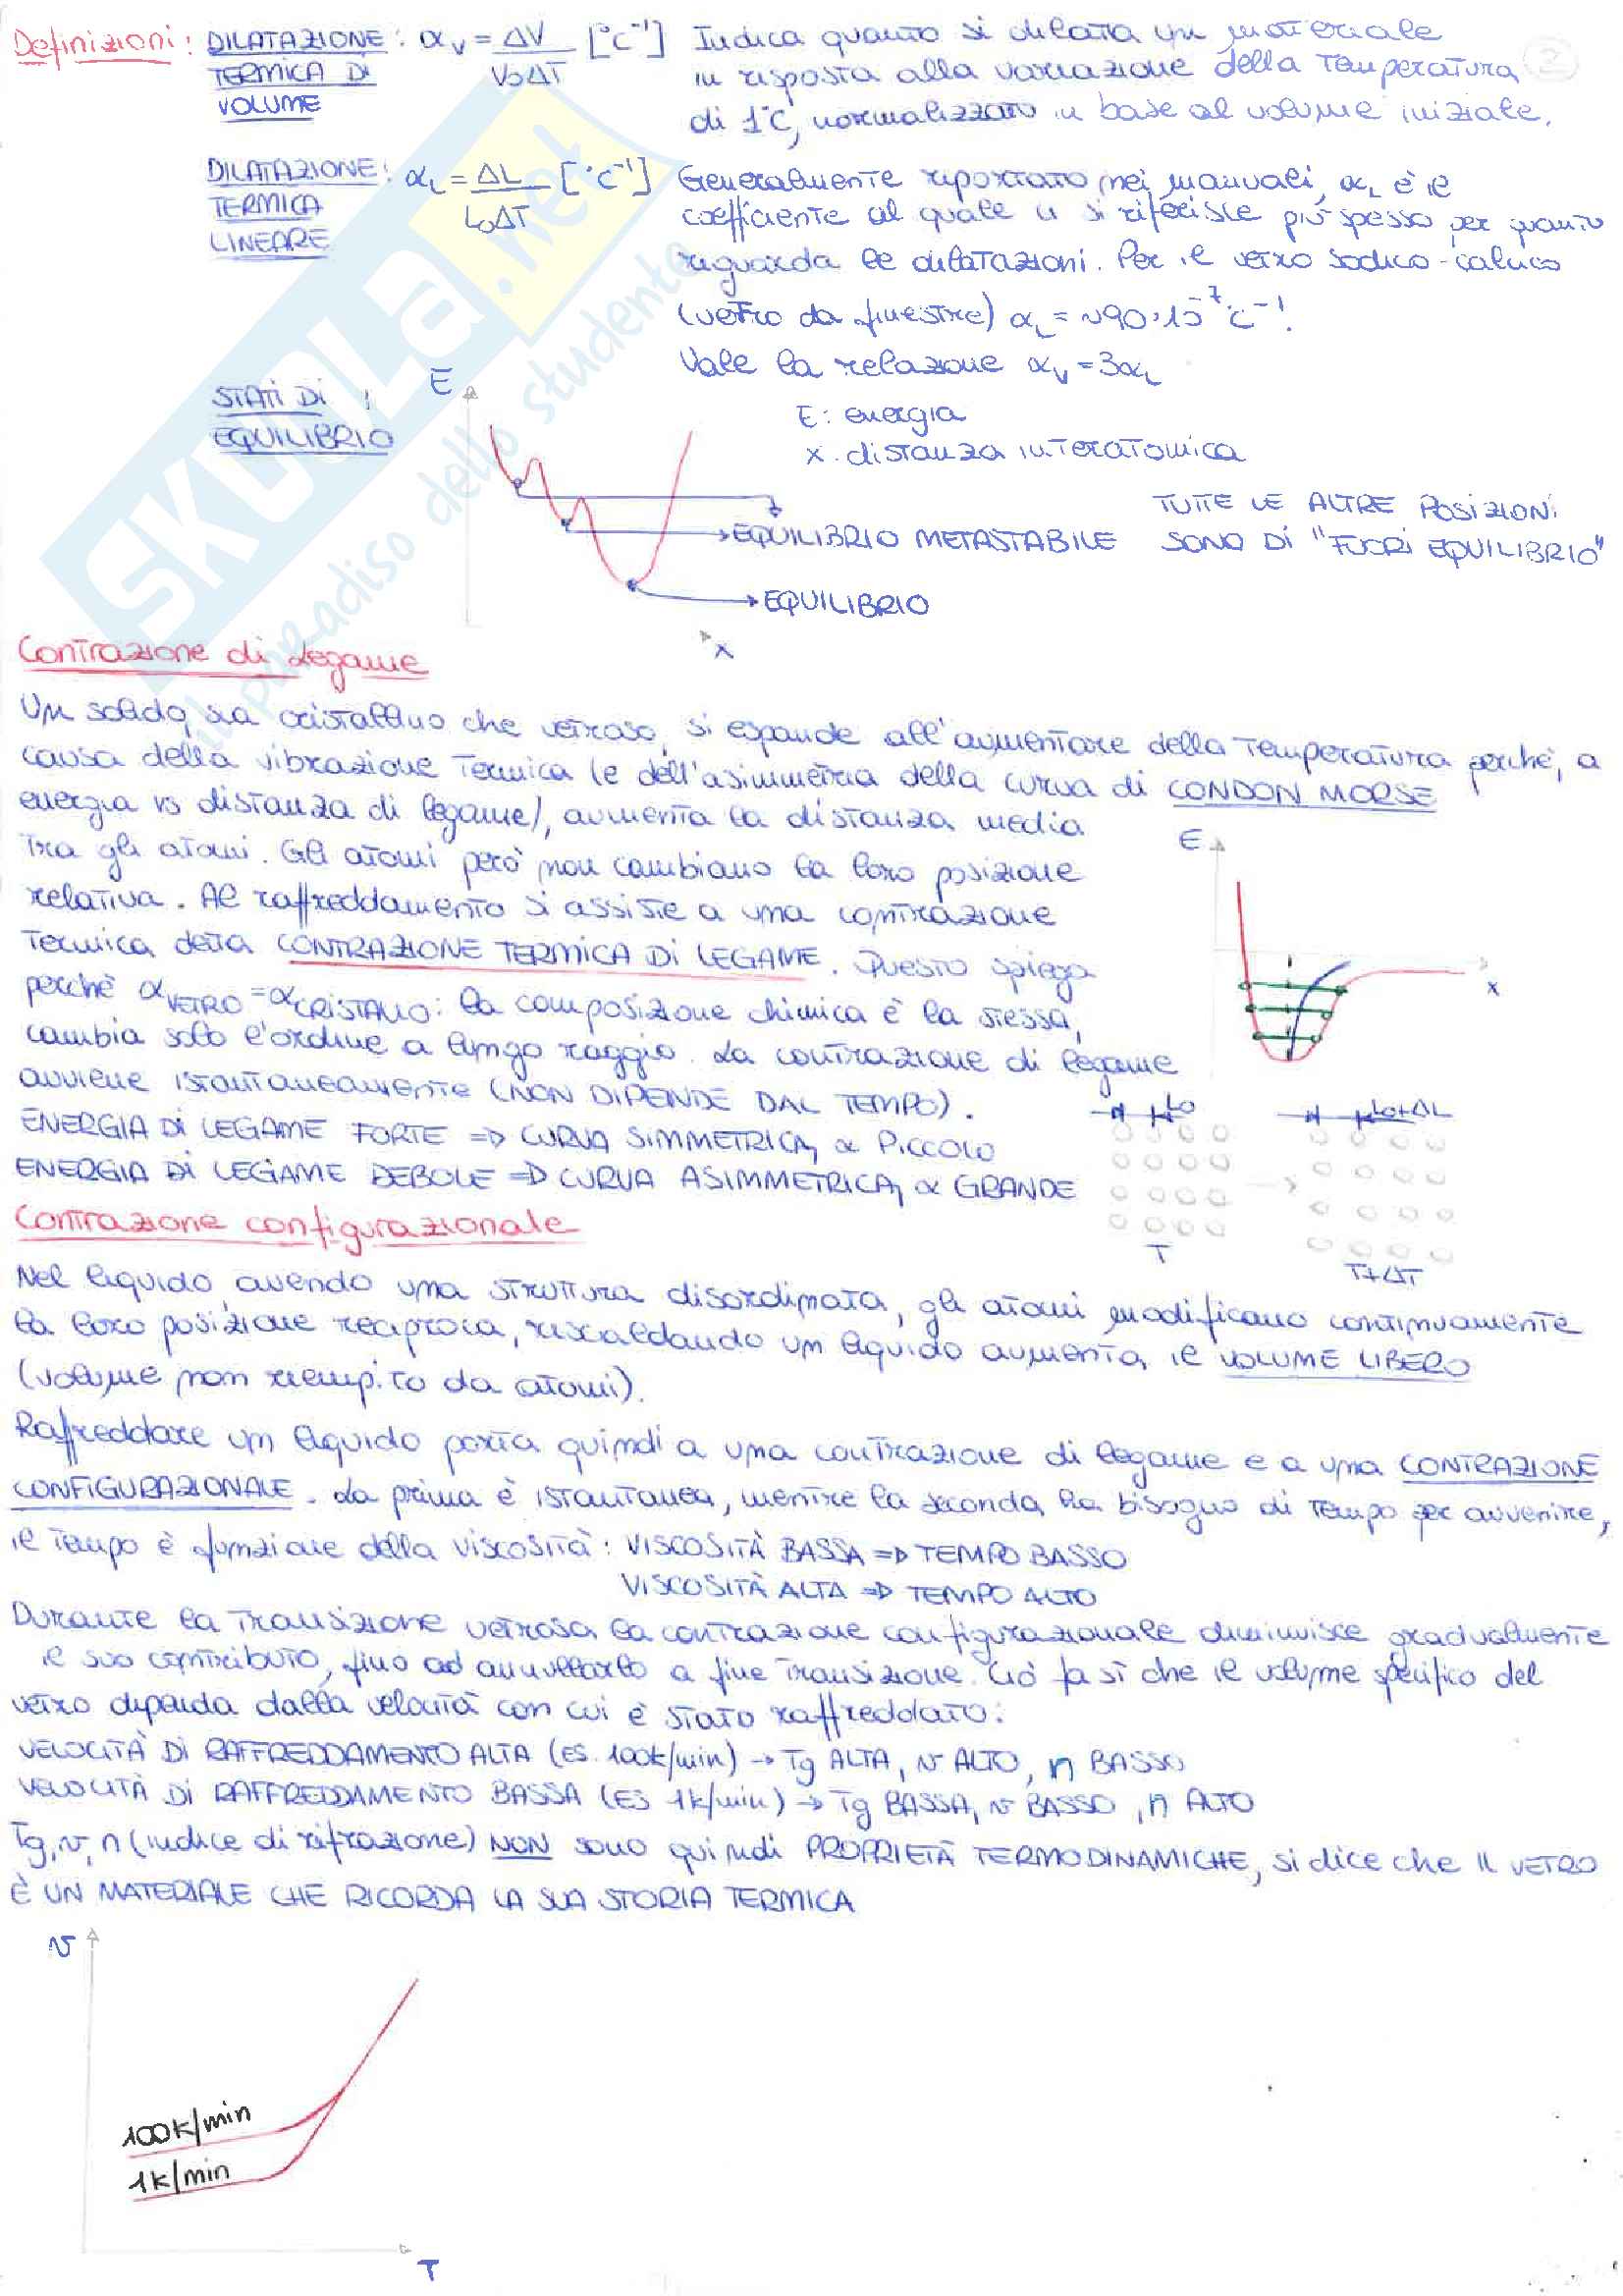 Definizioni: DILATAZIONE TERMICA DI VOLUME: αV = ΔV / V0ΔT [°C⁻¹] Indica quanto si dilata un materiale
in risposta alla variazione della temperatura
di 1°C, normalizzato in base al volume iniziale.
2
DILATAZIONE TERMICA LINEARE: αL = ΔL / L0ΔT [°C⁻¹] Generalmente riportato nei manuali, αL è il
coefficiente al quale ci si riferisce più spesso per quanto
riguarda le dilatazioni. Per il vetro sodico-calcico
(vetro da finestre) αL = ~90·10⁻⁷ °C⁻¹.
Vale la relazione αV = 3αL
STATI DI EQUILIBRIO:
E
E: energia
x: distanza interatomica
TUTTE LE ALTRE POSIZIONI
EQUILIBRIO METASTABILE
SONO DI "FUORI EQUILIBRIO"
EQUILIBRIO
x
Contrazione di legame
Un solido, sia cristallino che vetroso, si espande all'aumentare della temperatura perché, a
causa della vibrazione termica (e dell'asimmetria della curva di CONDON MORSE
energia vs distanza di legame), aumenta la distanza media
tra gli atomi. Gli atomi però non cambiano la loro posizione
relativa. Al raffreddamento si assiste a una contrazione
termica detta CONTRAZIONE TERMICA DI LEGAME. Questo spiega
perché αVETRO = αCRISTALLO: la composizione chimica è la stessa,
cambia solo l'ordine a lungo raggio. La contrazione di legame
avviene istantaneamente (NON DIPENDE DAL TEMPO).
ENERGIA DI LEGAME FORTE => CURVA SIMMETRICA, α PICCOLO
ENERGIA DI LEGAME DEBOLE => CURVA ASIMMETRICA, α GRANDE
E
x
L0
L0+ΔL
T
T+ΔT
Contrazione configurazionale
Nel liquido, avendo una struttura disordinata, gli atomi modificano continuamente
la loro posizione reciproca, riscaldando un liquido aumenta il VOLUME LIBERO
(volume non riempito da atomi).
Raffreddare un liquido porta quindi a una contrazione di legame e a una CONTRAZIONE
CONFIGURAZIONALE. La prima è istantanea, mentre la seconda ha bisogno di tempo per avvenire,
il tempo è funzione della viscosità: VISCOSITÀ BASSA => TEMPO BASSO
VISCOSITÀ ALTA => TEMPO ALTO
Durante la transizione vetrosa la contrazione configurazionale diminuisce gradualmente
il suo contributo, fino ad annullarlo a fine transizione. Ciò fa sì che il volume specifico del
vetro dipenda dalla velocità con cui è stato raffreddato:
VELOCITÀ DI RAFFREDDAMENTO ALTA (ES. 100K/min) → Tg ALTA, v ALTO, n BASSO
VELOCITÀ DI RAFFREDDAMENTO BASSA (ES 1K/min) → Tg BASSA, v BASSO, n ALTO
Tg, v, n (indice di rifrazione) NON sono quindi PROPRIETÀ TERMODINAMICHE, si dice che IL VETRO
È UN MATERIALE CHE RICORDA LA SUA STORIA TERMICA
v
100K/min
1K/min
T
SKUOLA.net
il paradiso dello studente